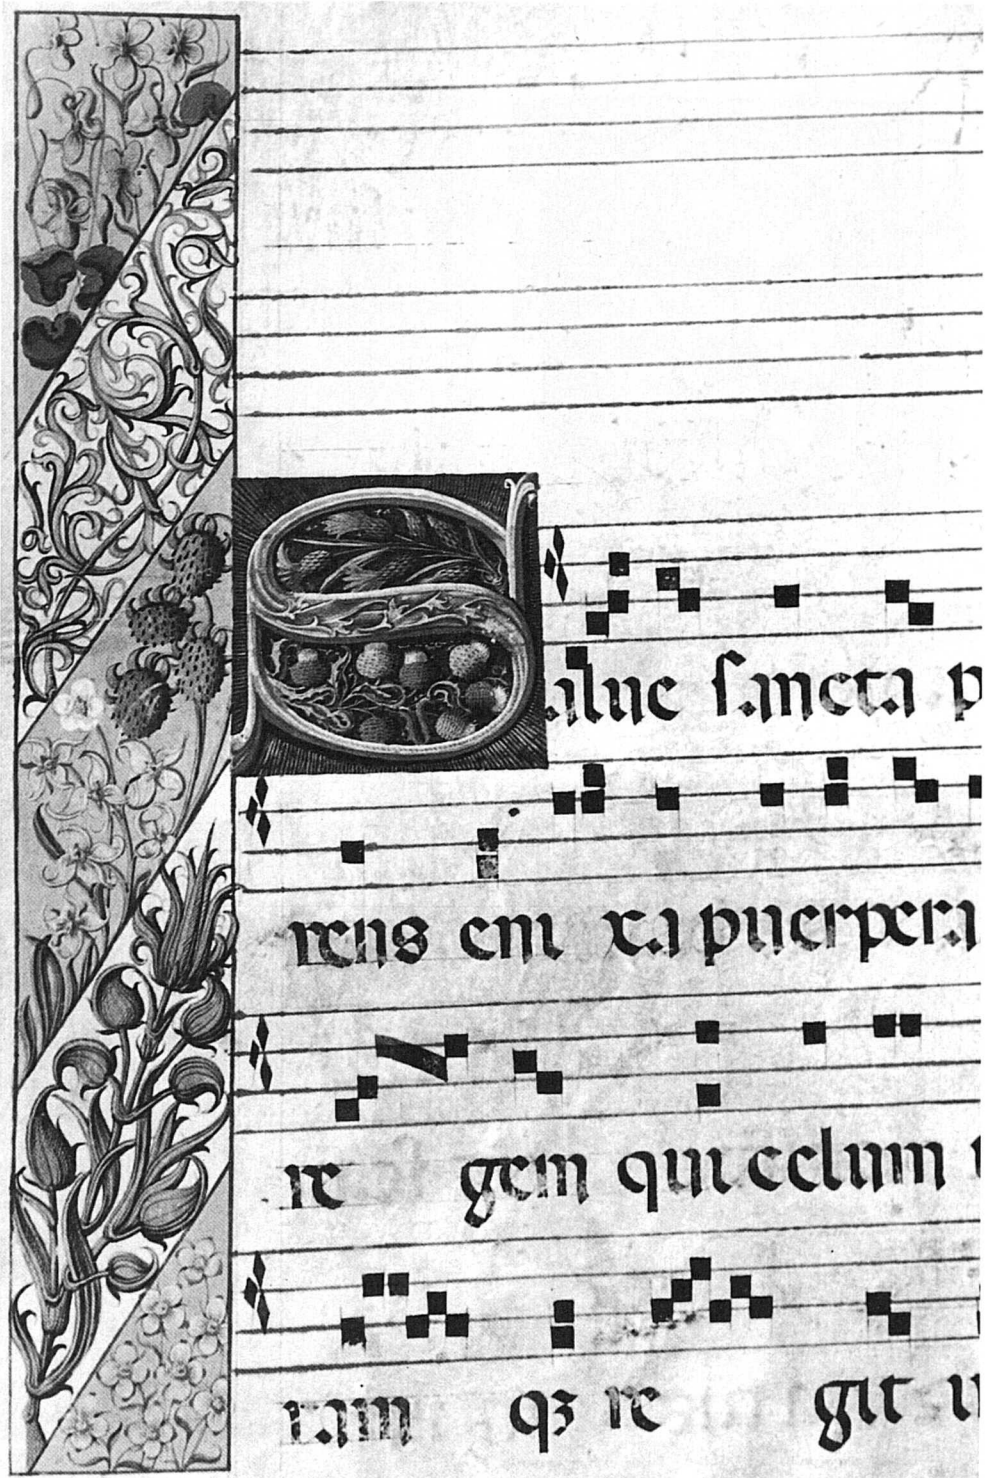 Salue sancta p
rens eni xa puerpera
re gem qui celum
ram qꝫ re git i